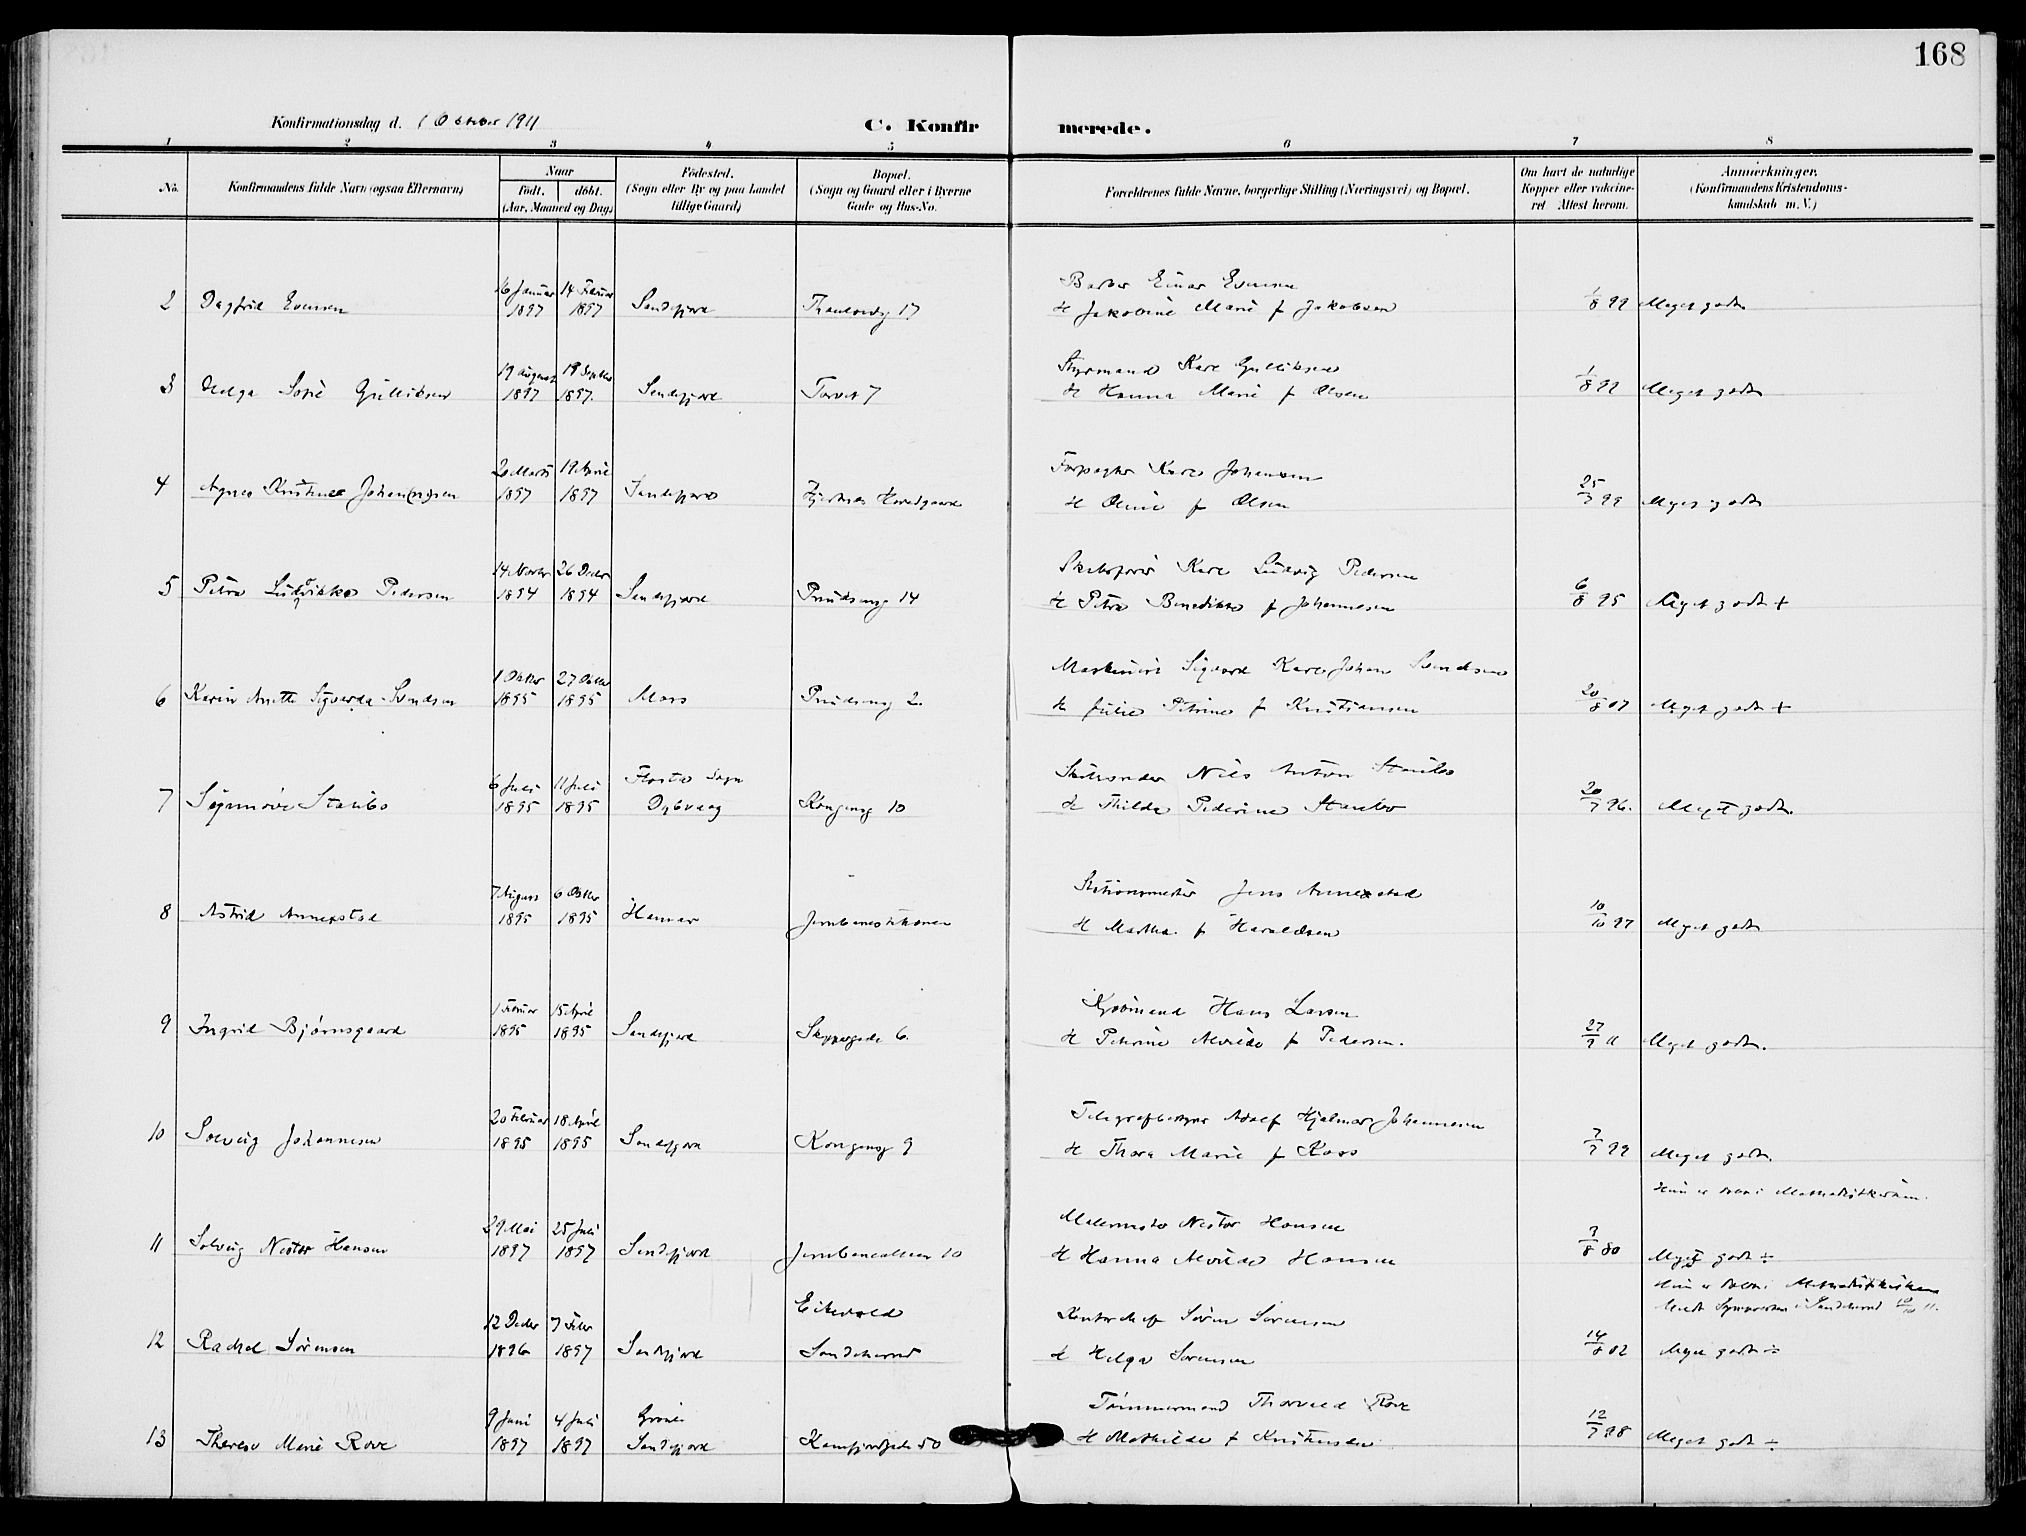 168
Konfirmationsdag d. 1 Oktober 1911
C. Konfirmerede.
1 2 3 4 5 6 7 8
No. Konfirmandens fulde Navn (ogsaa Efternavn) Naar født. døbt. (Aar, Maaned og Dag) Födested. (Sogn eller By og paa Landet tillige Gaard) Bopæl. (Sogn og Gaard eller i Byerne Gade og Hus-No. Forældrenes fulde Navne, borgerlige Stilling (Næringsvei) og Bopæl. Om havt de naturlige Kopper eller vakcineret Attest herom. Anmærkninger. (Konfirmandens Kristendomskundskab m. V.)
16 Januar 14 Februar Barber Einar Evensen
2 Dagfrid Evensen 1897 1897 Sandefjord 17 H Jakobine Marie f Jakobsen 1/8 99 Meget godt
19 August 19 Septbr Styrmand Karl Gulliksen
3 Helga Sofie Gulliksen 1897 1897. Sandefjord Torvet 7 H Hanna Marie f Olsen 1/8 99 Meget godt
20 Marts 19 April Forpagter Karl Johansen
4 Agnes Kristine Johan(ne)sen 1897 1897 Sandefjord Hjertnes Hovedgaard H Oline f Olsen 25/7 99 Meget godt
14 Novbr 26 Decbr Skibsfører Karl Ludvig Pedersen
5 Petra Ludvikka Pedersen 1894 1894 Sandefjord Prindseng 14 H Petra Benedikte f Johannesen 6/8 95 Meget godt +
1 Oktbr 27 Oktbr Maskinist Sigvard Karl Johan Svendsen
6 Karin Anette Sigvarda Svendsen 1895 1895 Moss Prindseng 2. H Julie Petrine f Kristiansen 20/8 07 Meget godt +
6 Juli 11 Juli Flosta Sogn Nils Anton Staubo
7 Staubo 1895 1895 Dybvaag Kongensg 10 H Thilda Pederine Staubo 20/7 96. Meget godt.
7 August 6 Oktbr Stationsmester Jens Annexstad
8 Astrid Annexstad 1895 1895 Hamar Jernbanestationen H Martha f Haraldsen 10/10 97 Meget godt
1 Februar 15 April Hans Larsen
9 Ingrid Bjørnsgaard 1895 1895 Sandefjord Skippergade 6. H Petrine Alvilde f Pedersen. 27/9 11 Meget godt.
20 Februar 18 April Telegrafbestyrer Adolf Hjalmar Johannesen
10 Solveig Johannesen 1895 1895 Sandefjord Kongensg 9 H Thora Marie f Koss 7/7 99 Meget godt.
Hun er døbt i Methodistkirken.
29 Mai 25 Juli Malermester Nestor Hansen
11 Solveig Nestor Hansen 1897 1897 Sandefjord Jernbanealleen 10 H Hanna Alvilde Hansen 7/8 80 Meget godt ÷
Hun er døbt i Methodistkirken
12 Decbr 7 Febr Ekevold Kontorchef Søren Sørensen
12 Rachel Sørensen 1896 1897 Sandefjord Sandeherred H Helga Sørensen 14/8 02 Meget godt ÷
9 Juni 4 Juli Tømmermand Thorvald Rove
13 Therese Marie Rove 1897 1897 Sandefjord Kamfjordgade 50 H Mathilde f Kristensen 12/7 98 Meget godt ÷